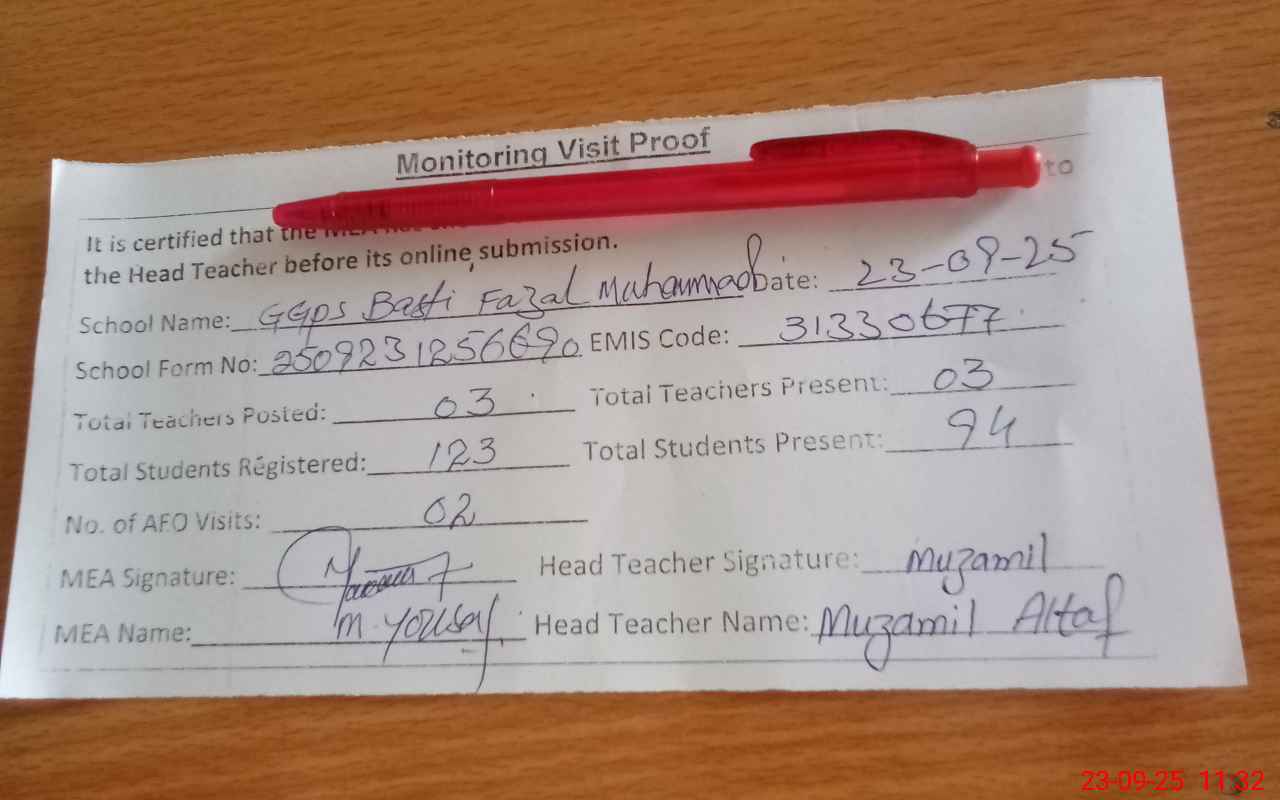 Monitoring Visit Proof
It is certified that the MEA to
the Head Teacher before its online submission.
School Name: GGps Basti Fazal Muhammad Date: 23-09-25
School Form No: 2509231256690 EMIS Code: 31330677
Total Teachers Posted: 03 Total Teachers Present: 03
Total Students Registered: 123 Total Students Present: 94
No. of AEO Visits: 02
MEA Signature: Head Teacher Signature: Muzamil
MEA Name: M. Yousaf Head Teacher Name: Muzamil Altaf
23-09-25 11:32